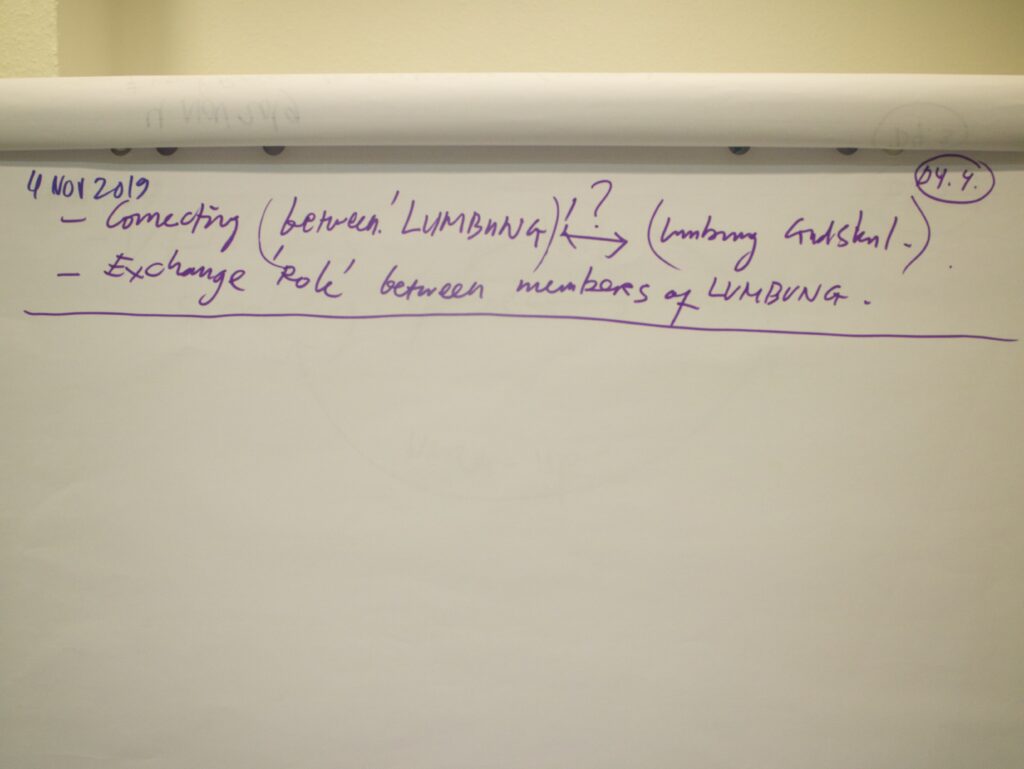 4 NOV 2019
04.4.
- Connecting (between 'LUMBUNG)' ? ↔ (lumbung Gudskul.)
- Exchange 'Role' between members of LUMBUNG.